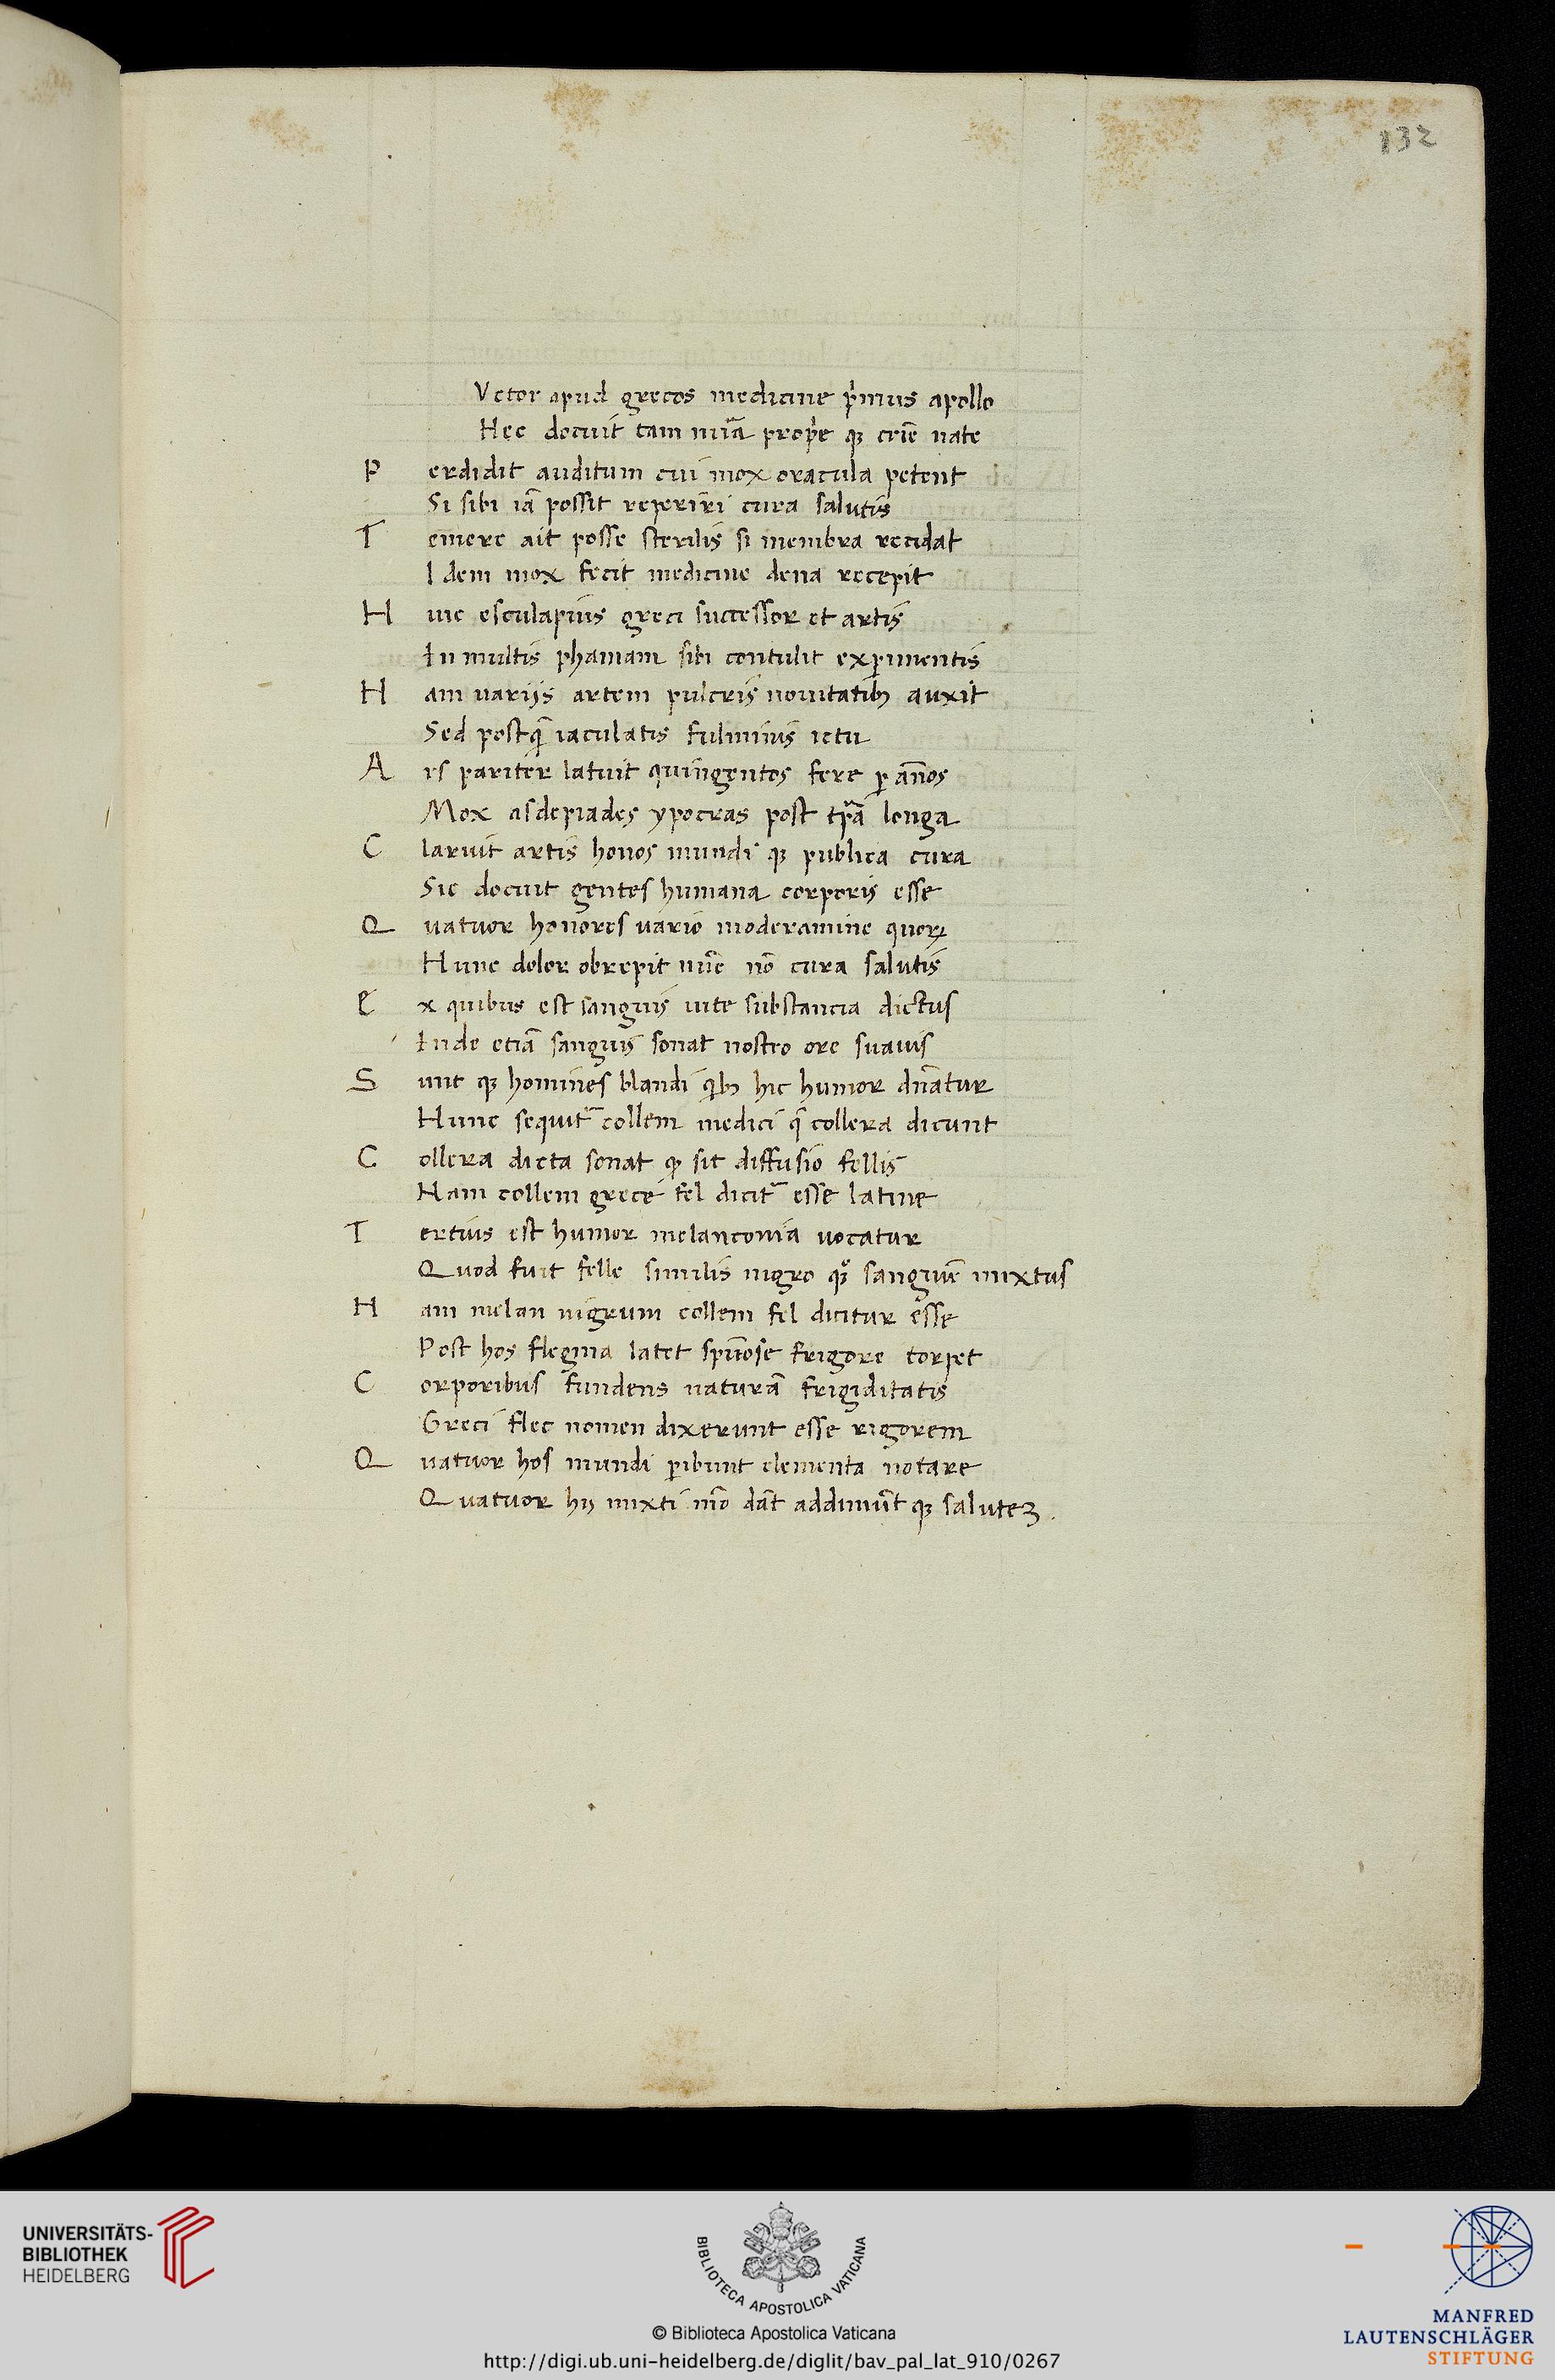 132
Vctor apud grecos medicine p̓mus apollo
Hec docuit tam nr̄a prop̓e qꝫ crīe nate
P erdidit auditum cui mox oracula petent
Si sibi iā possit reperiri cura salutis
T emere ait posse sterilis si membra recidat
Idem mox fecit medicine dena recepit
H uic esculapius greci successor et artis
In multis phamam sibi contulit exꝑimentis
H am varijs artem pulcris nouitatibꝫ auxit
Sed postqꝫ̄ iaculatis fulminis ictu
A rs pariter latuit quingentos fere ꝑ an̄os
Mox asdepiades ypocras post tp̄ā longa
C laruit artis honos mundi qꝫ publica cura
Sic docuit gentes humana corporis esse
Q vatuor honores vario moderamine quoꝝ
Hunc dolor obrepit nūc nō cura salutis
E x quibus est sanguis uite substancia dictus
Inde etiā sanguis sonat nostro ore suauis
S unt qꝫ homines blandi qͥbꝫ hic humor dn̄atur
Hunc sequit᷑ collem medici q̄ collera dicunt
C ollera dicta sonat ꝙ sit diffusio fellis
Ham collem grece fel dicit᷑ esse latine
T ertius est humor melanconia vocatur
Quod fuit felle similis nigro qꝫ sanguinē mixtus
H am melan nigrum collem fel dicitur esse
Post hos flegma latet spūose frigore torpet
C orporibus fundens naturā frigiditatis
Greci flec nomen dixerunt esse rigorem
Q vatuor hos mundi ꝑibunt elementa notare
Qvatuor hij mixti mō dāt addimūt qꝫ saluteꝫ.
UNIVERSITÄTS-
BIBLIOTHEK
HEIDELBERG
BIBLIOTECA APOSTOLICA VATICANA
© Biblioteca Apostolica Vaticana
http://digi.ub.uni-heidelberg.de/diglit/bav_pal_lat_910/0267
MANFRED
LAUTENSCHLÄGER
STIFTUNG